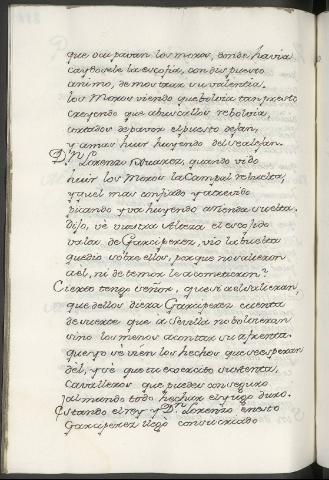 que ocupavan los moros, donde havia
caydosele la escofia, con dispuesto
animo, de mostrar su valentia.
los Moros viendo que bolvia tan presto
creyendo que a buscallos rebolvia,
cortados de pavor el puesto dejan,
y a mas huir huyendo del se alejan.
D.ⁿ Lorenzo Suarez, quando vido
huir los Moros la Campal rebuelta,
y aquel mas confiado y atrevido
picando y va huyendo a rienda suelta.
Dijo, vè vuestra Alteza el escojido
valor de Garciperez, viò la buelta
que diò sobre ellos, porque no salieron
a èl, ni de temor le acometieron?
Cierto tengo señor, que si a el salieran,
que dellos diera Garciperez cuenta
de suerte que à Sevilla no bolvieran
sino los menos a contar su afrenta.
que yo sè vien los hechos que se esperan
dèl, y sè que tu exercito sustenta,
Cavalleros que pueden con seguro
al mundo todo hechar el yugo duro.
Estando el rey y D.ⁿ Lorenzo en esto
Garciperez llegò con su criado